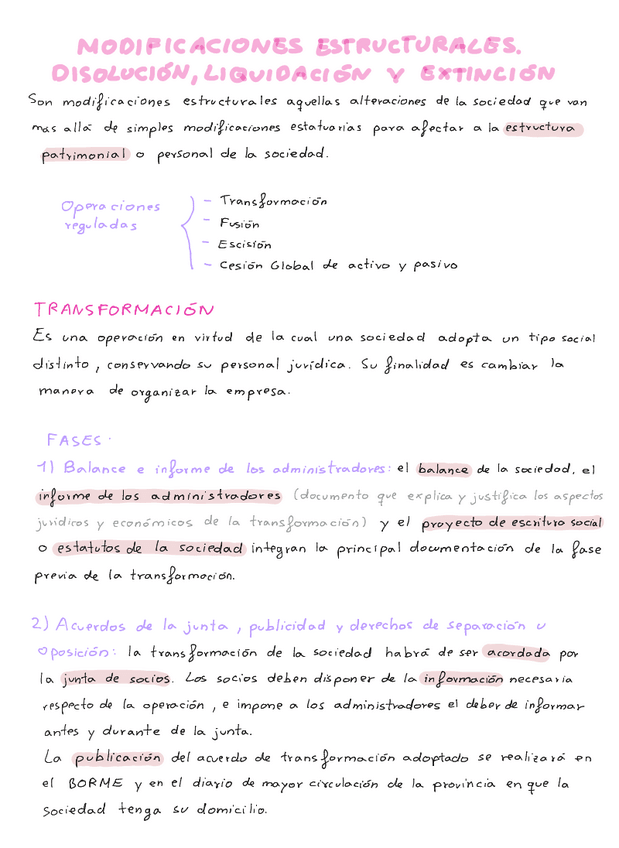 MODIFICACIONES ESTRUCTURALES.
DISOLUCIÓN, LIQUIDACIÓN Y EXTINCIÓN
Son modificaciones estructurales aquellas alteraciones de la sociedad que van
mas allá de simples modificaciones estatuarias para afectar a la estructura
patrimonial o personal de la sociedad.
Operaciones
reguladas
- Transformación
- Fusión
- Escisión
- Cesión Global de activo y pasivo
TRANSFORMACIÓN
Es una operación en virtud de la cual una sociedad adopta un tipo social
distinto, conservando su personal jurídica. Su finalidad es cambiar la
manera de organizar la empresa.
FASES.
1) Balance e informe de los administradores: el balance de la sociedad, el
informe de los administradores (documento que explica y justifica los aspectos
jurídicos y económicos de la transformación) y el proyecto de escritura social
o estatutos de la sociedad integran la principal documentación de la fase
previa de la transformación.
2) Acuerdos de la junta, publicidad y derechos de separación u
oposición: la transformación de la sociedad habrá de ser acordada por
la junta de socios. Los socios deben disponer de la información necesaria
respecto de la operación, e impone a los administradores el deber de informar
antes y durante de la junta.
La publicación del acuerdo de transformación adoptado se realizará en
el BORME y en el diario de mayor circulación de la provincia en que la
sociedad tenga su domicilio.